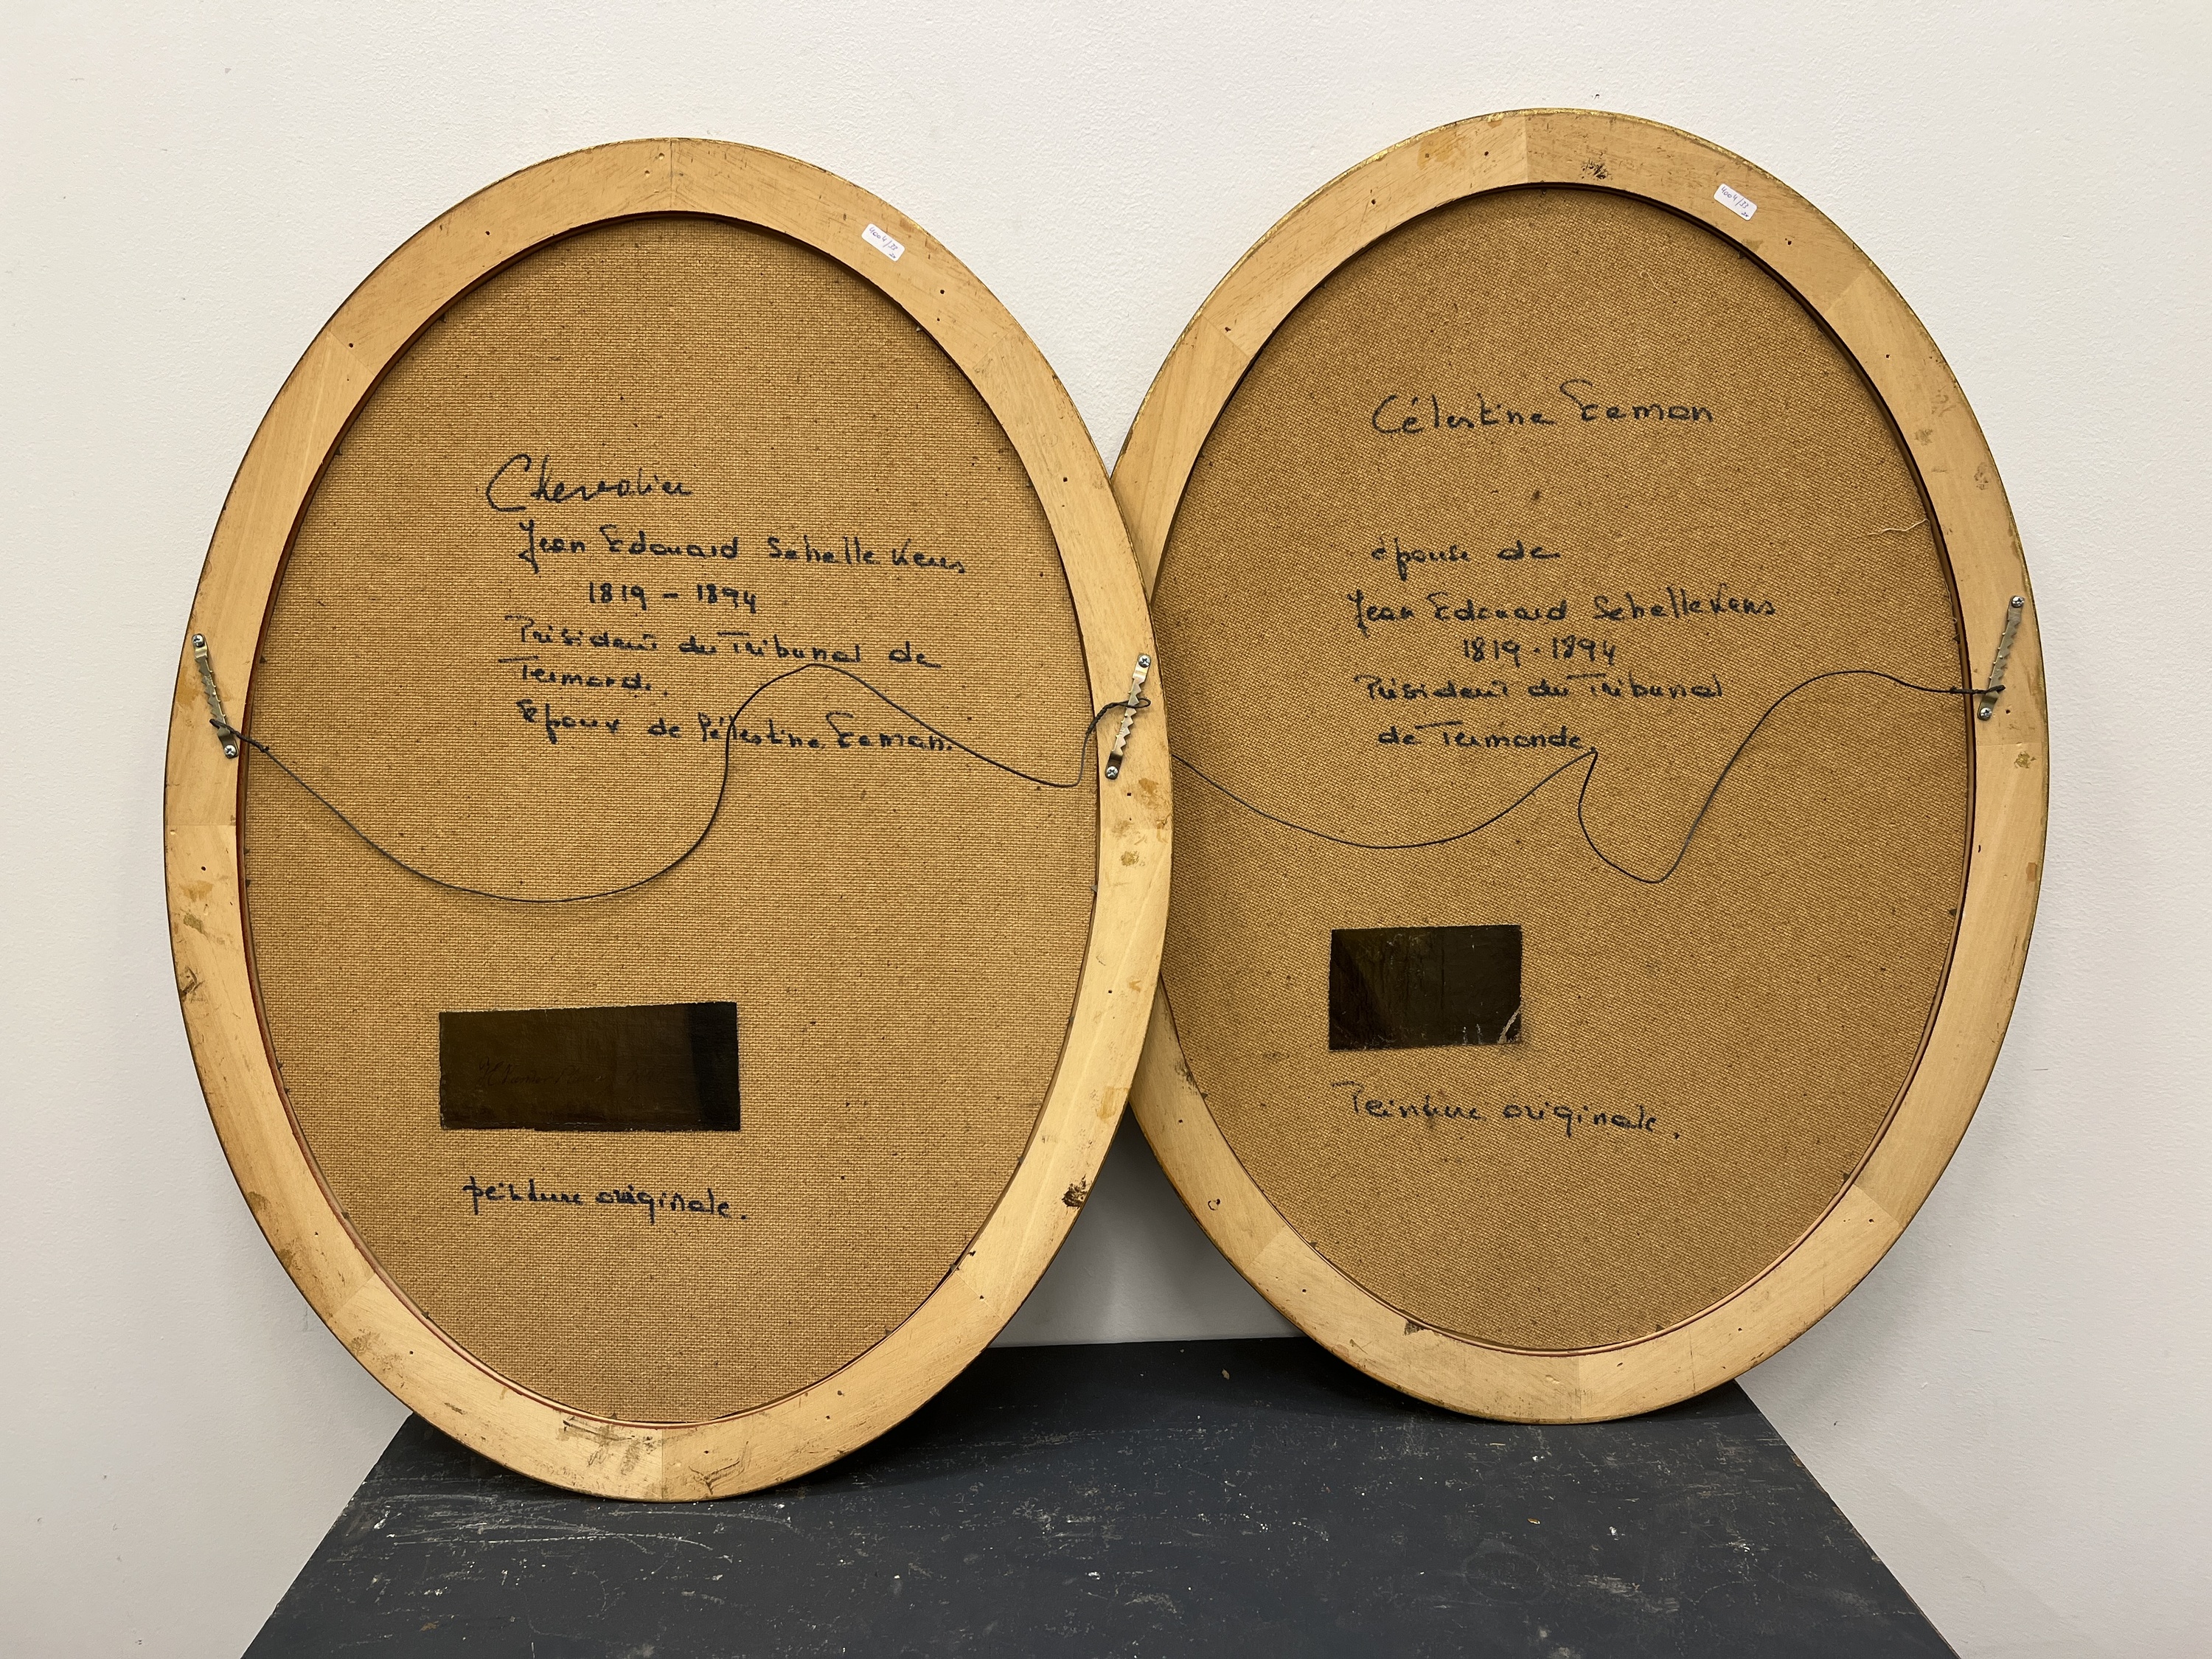 4004/22
20
Chevalier
Jean Edouard Schellekens
1819 - 1894
Président du Tribunal de
Termonde.
Epoux de Célestine Eeman.
peinture originale.
4004/22
20
Célestine Eeman
épouse de
Jean Edouard Schellekens
1819 - 1894
Président du Tribunal
de Termonde.
Peinture originale.